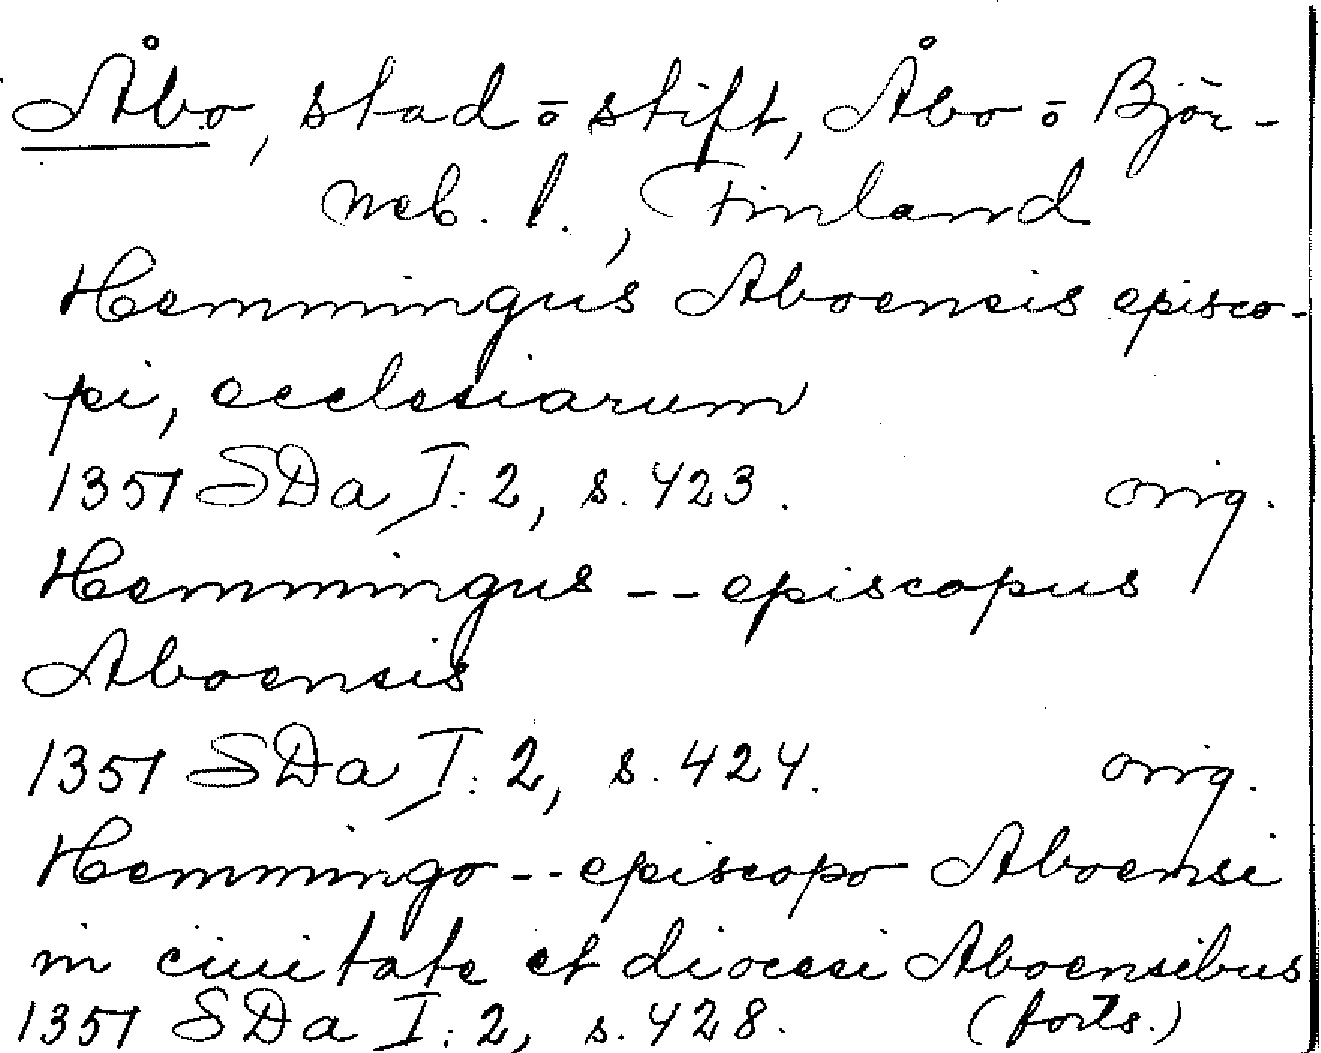 Åbo, stad o stift, Åbo o Björ-
neb. l., Finland
Hemmingus Aboensis episco-
pi, ecclesiarum
1351 SDa I:2, s. 423. orig.
Hemmingus -- episcopus
Aboensis
1351 SDa I:2, s. 424. orig.
Hemmingo -- episcopo Aboensi
in ciuitate et diocesi Aboensibus
1351 SDa I:2, s. 428. (forts.)